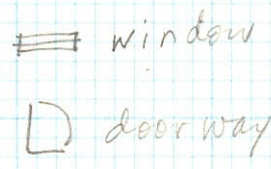 window
doorway